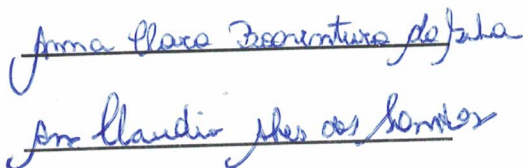 Anna Clara Boaventura da Silva
Ana Claudia Alves dos Santos